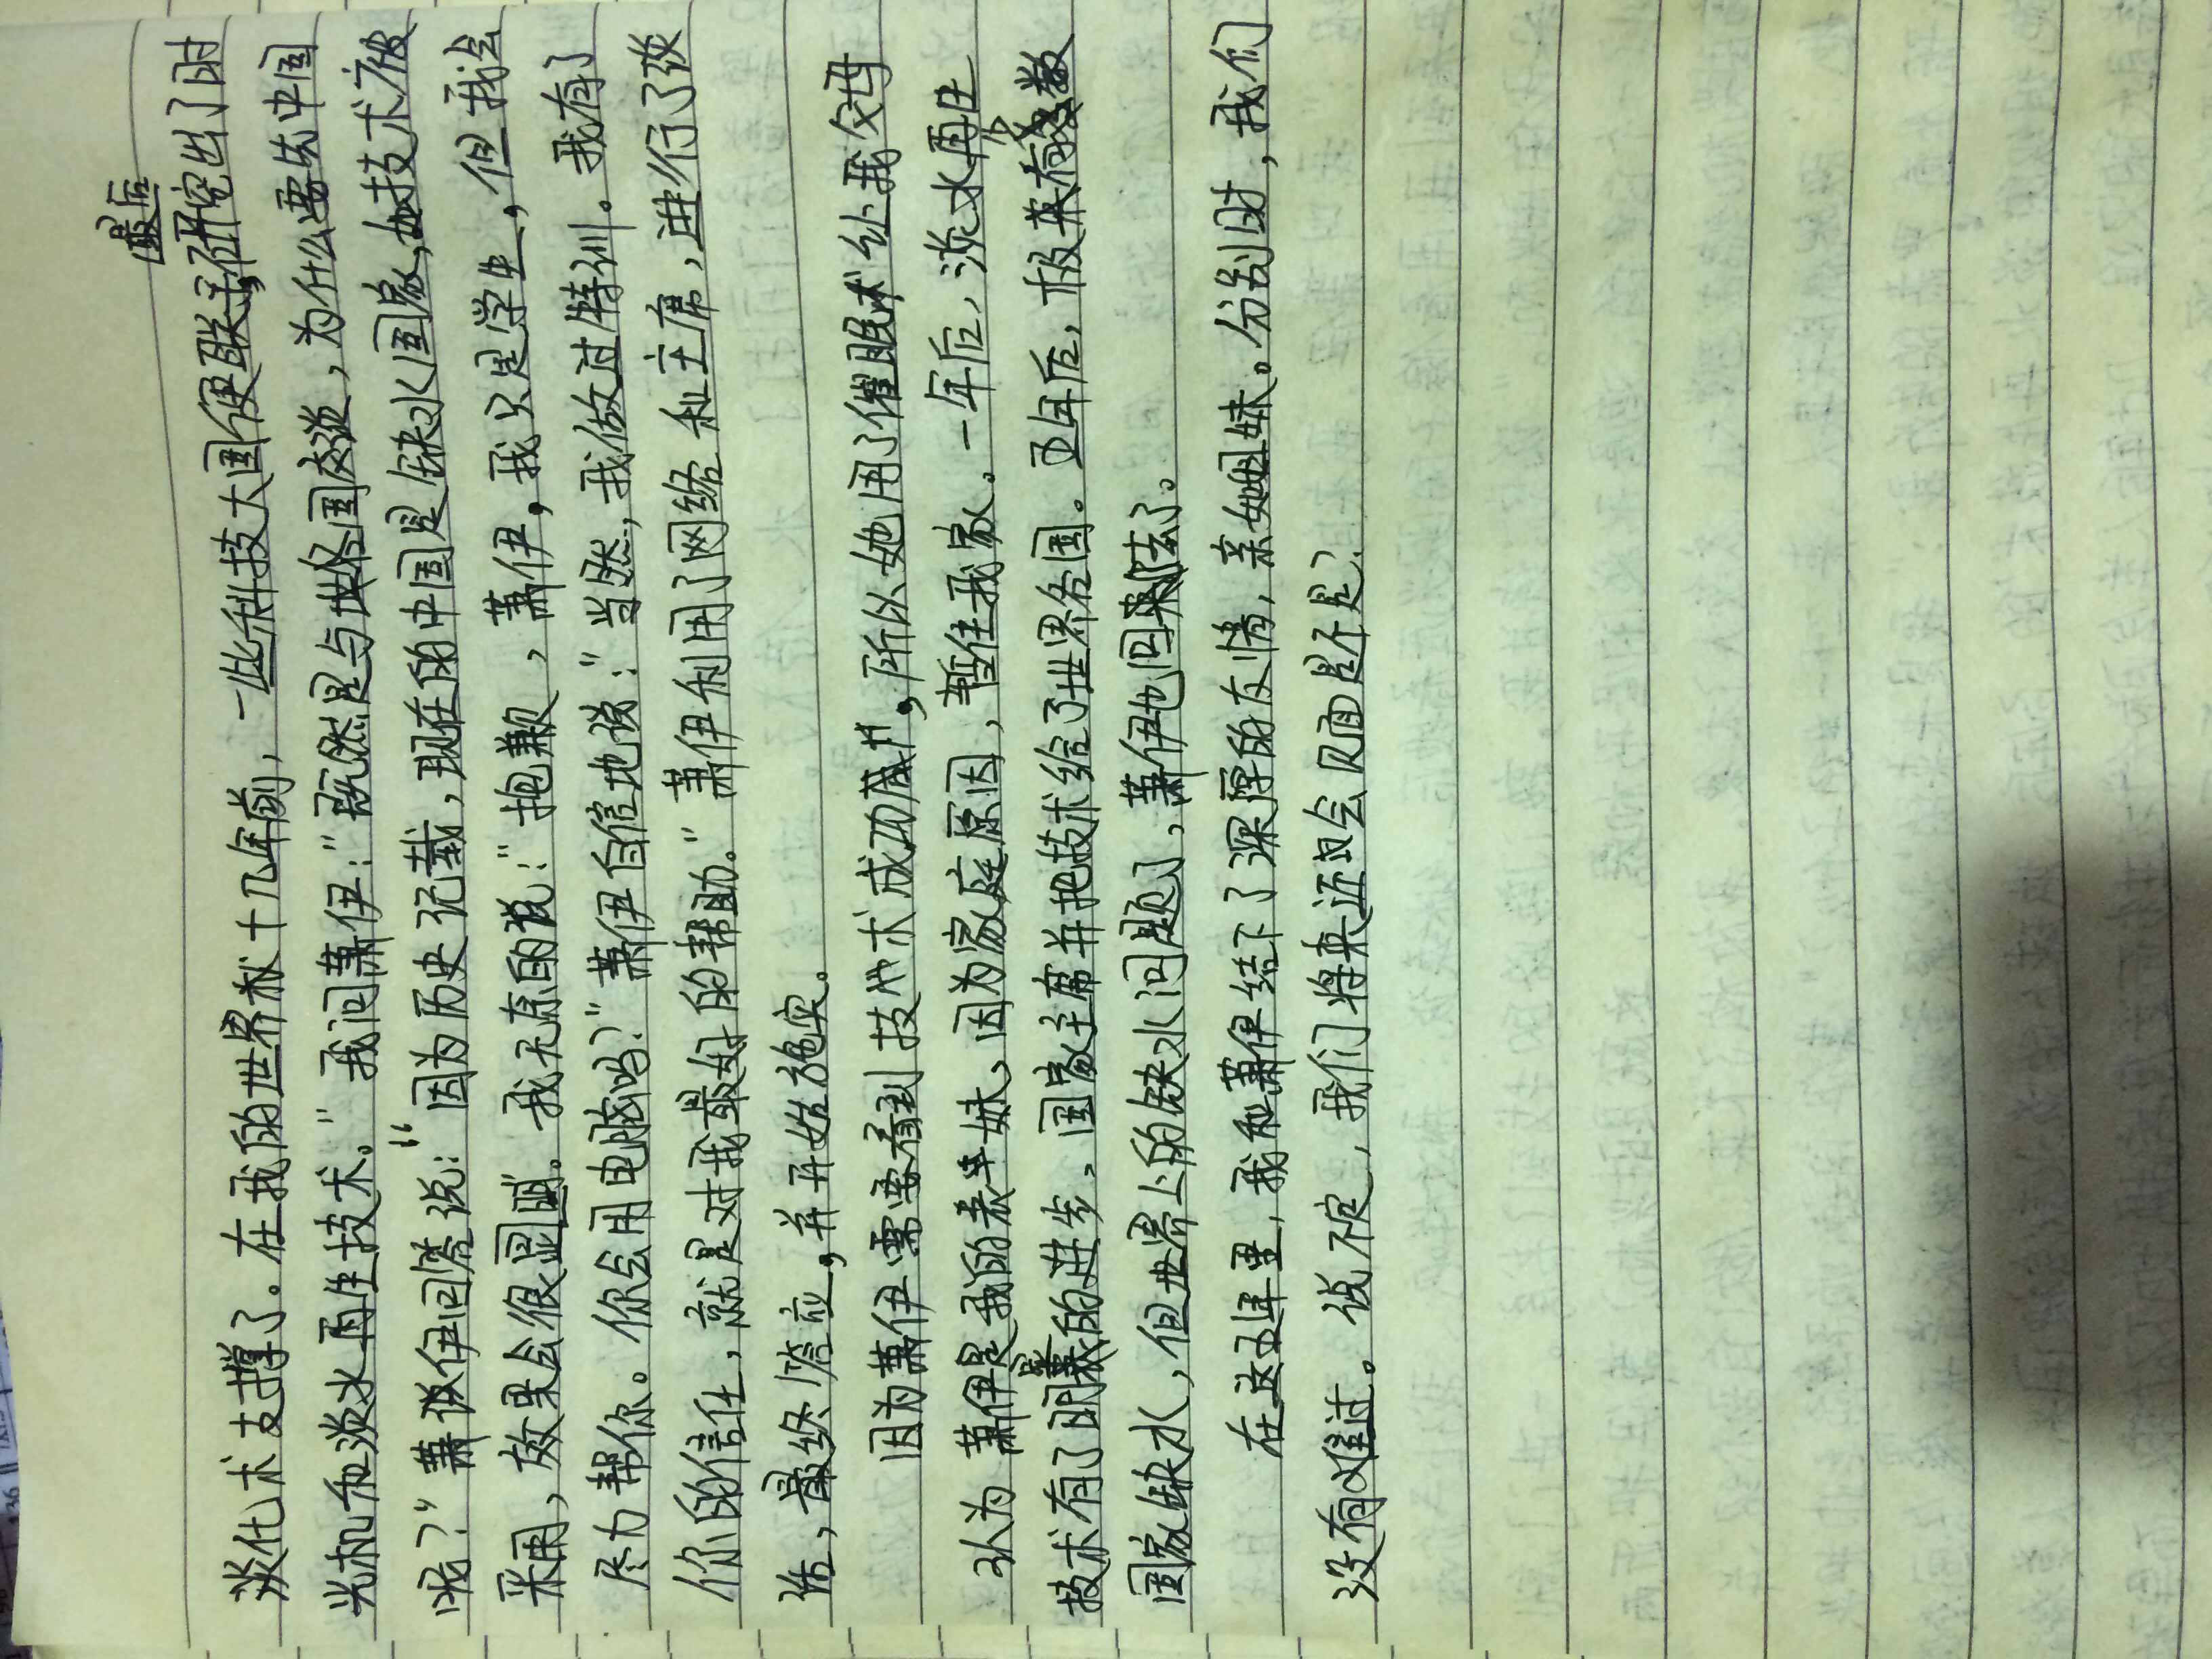 最后
淡化术支撑了。在我的世界秋十几年前，一些科技大国便联手，研究出了时
光机和淡水再生技术。”我问萧伊：“既然是与世界各国交谈，为什么要先中国
呢？”萧伊回答说：“因为历史记载，现在的中国是缺水国家，如技术被
采用，效果会很显明。我无奈的说：“抱歉，萧伊，我只是学生，但我会
尽力帮你。你会用电脑吗？”萧伊自信地说：“当然，我做过特训。我有了
你的信任，就是对我最好的帮助。”萧伊利用了网络和主席，进行了谈
话，最终答应，并开始施实。
因为萧伊需要看到技术成功，所以她用了催眠术让我父母
认为萧伊是我的表妹，因为家庭原因，暂住我家。一年后，淡水再生
技术有了明显的进步，国家主席并把技术给了世界各国。五年后，极少数
国家缺水，但世界上的缺水问题了，萧伊也回去了。
在这5年里，我和萧伊结下了深厚的友情，亲如姐妹。分别时，我们
没有难过。说不定，我们将来还会见面是不是？